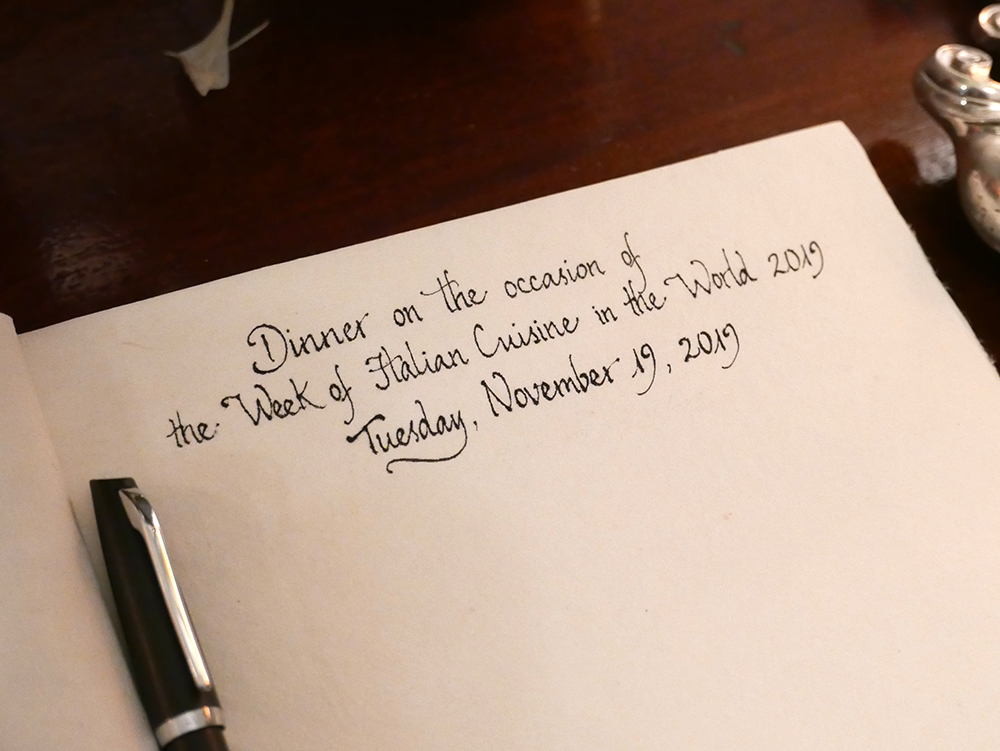 Dinner on the occasion of
the Week of Italian Cuisine in the World 2019
Tuesday, November 19, 2019